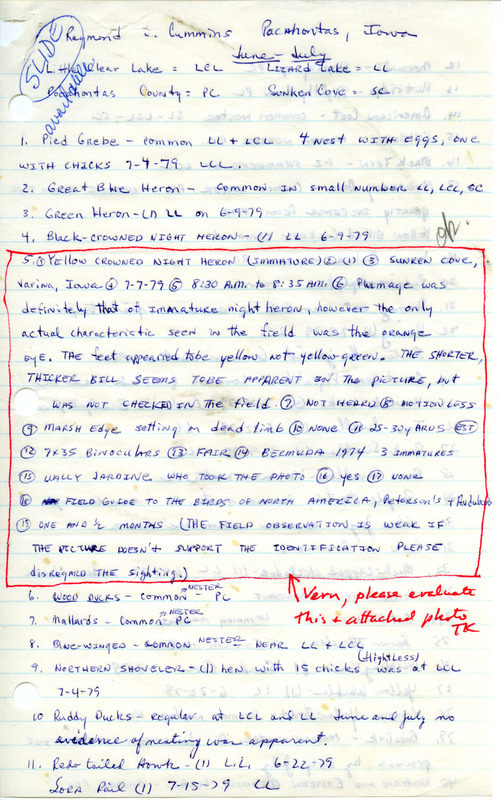 SLIDE
available
Raymond L. Cummins Pocahontas, Iowa
June - July
Little Clear Lake = LCL Lizard Lake = LL
Pocahontas County = PC Sunken Cove = SC
1. Pied Grebe - common LL + LCL 4 nest with eggs, one
with chicks 7-4-79 LCL.
2. Great Blue Heron - Common in small number LL, LCL, SC
3. Green Heron - (1) LL on 6-9-79
4. Black-crowned night heron - (1) LL 6-9-79
ok.
5. ① Yellow crowned night heron (immature) ② (1) ③ Sunken Cove,
Varina, Iowa ④ 7-7-79 ⑤ 8:30 A.M. to 8:35 A.M. ⑥ Plumage was
definitely that of immature night heron, however the only
actual characteristic seen in the field was the orange
eye. The feet appeared to be yellow not yellow-green. The shorter,
thicker bill seems to be apparent in the picture, but
was not checked in the field. ⑦ Not heard ⑧ motionless
⑨ marsh edge setting on dead limb ⑩ none ⑪ 25-30 yards EST
⑫ 7x35 Binoculars ⑬ Fair ⑭ Bermuda 1974 3 immatures
⑮ Wally Jardine who took the photo ⑯ yes ⑰ none
⑱ Field Guide to the Birds of North America, Peterson's + Audubon's
⑲ one and ½ months (The field observation is weak if
the picture doesn't support the identification please
disregard the sighting.)
6. Wood Ducks - Common NESTER - PC
7. Mallards - Common NESTER - PC
Vern, please evaluate
this + attached photo
TK
8. Blue-winged - common NESTER - near LL + LCL
9. Northern Shoveler - (1) hen with 15 chicks (flightless) was at LCL
7-4-79
10 Ruddy Ducks - regular at LCL and LL June and July no
evidence of nesting was apparent.
11. Red-tailed Hawk - (1) L.L. 6-22-79
Sora Rail (1) 7-15-79 LL